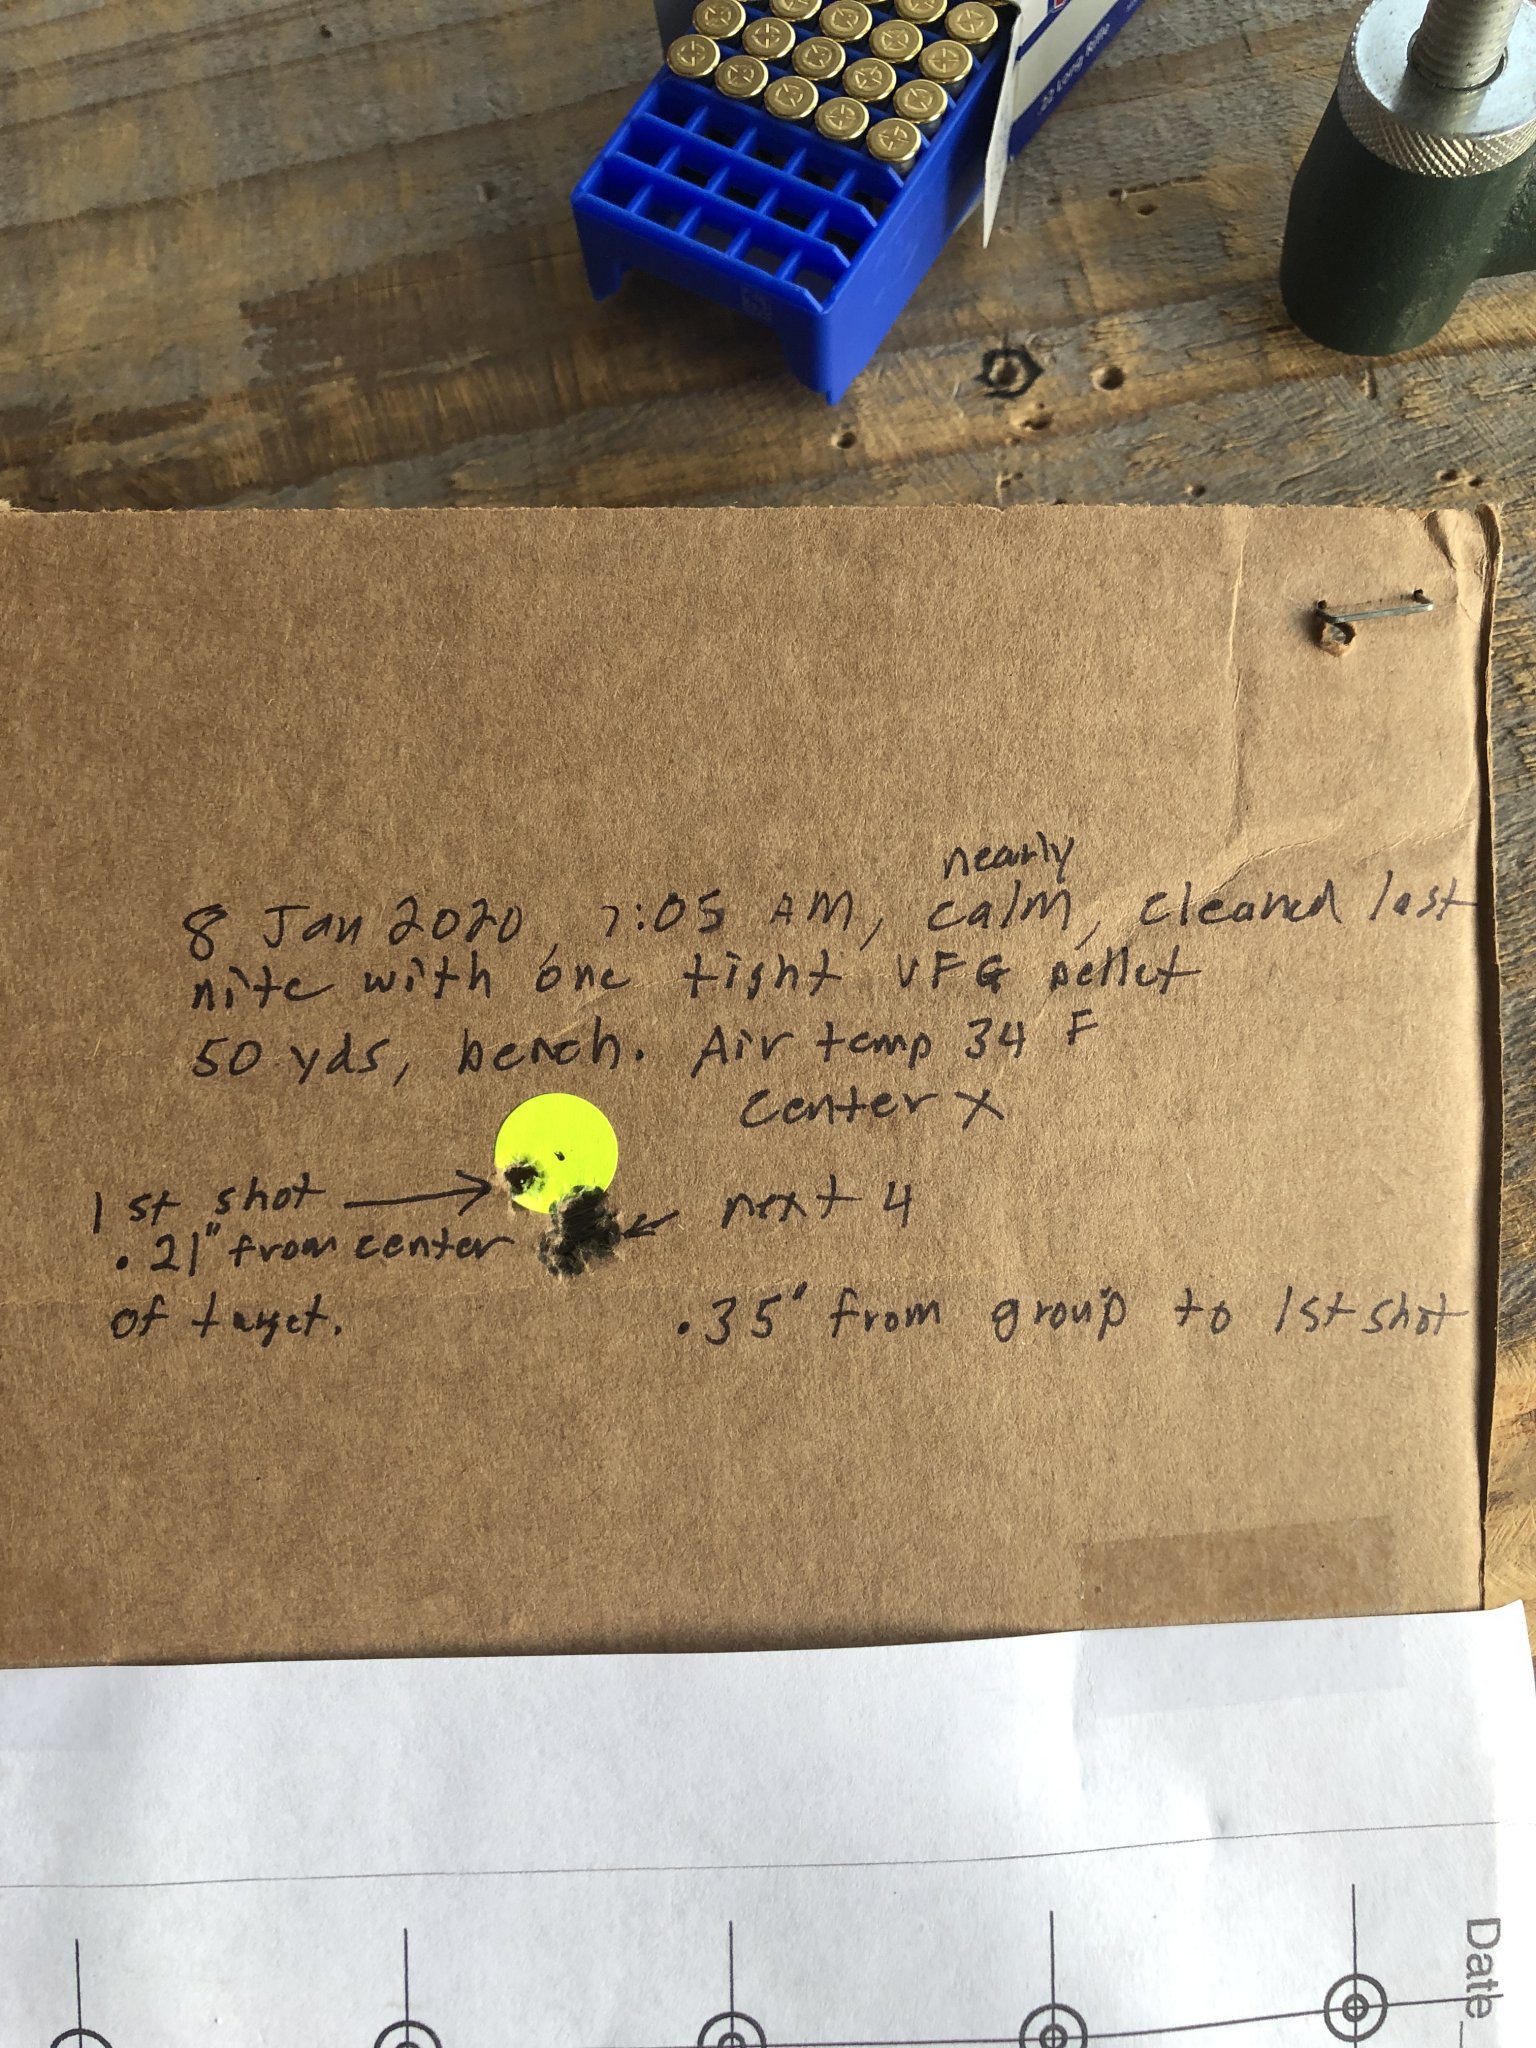 .22 Long Rifle
nearly
8 Jan 2020, 7:05 AM, calm, cleaned last
nite with one tight VFG pellet
50 yds, bench. Air temp 34 F
center x
1st shot
.21" from center
of target.
next 4
.35" from group to 1st shot
Date